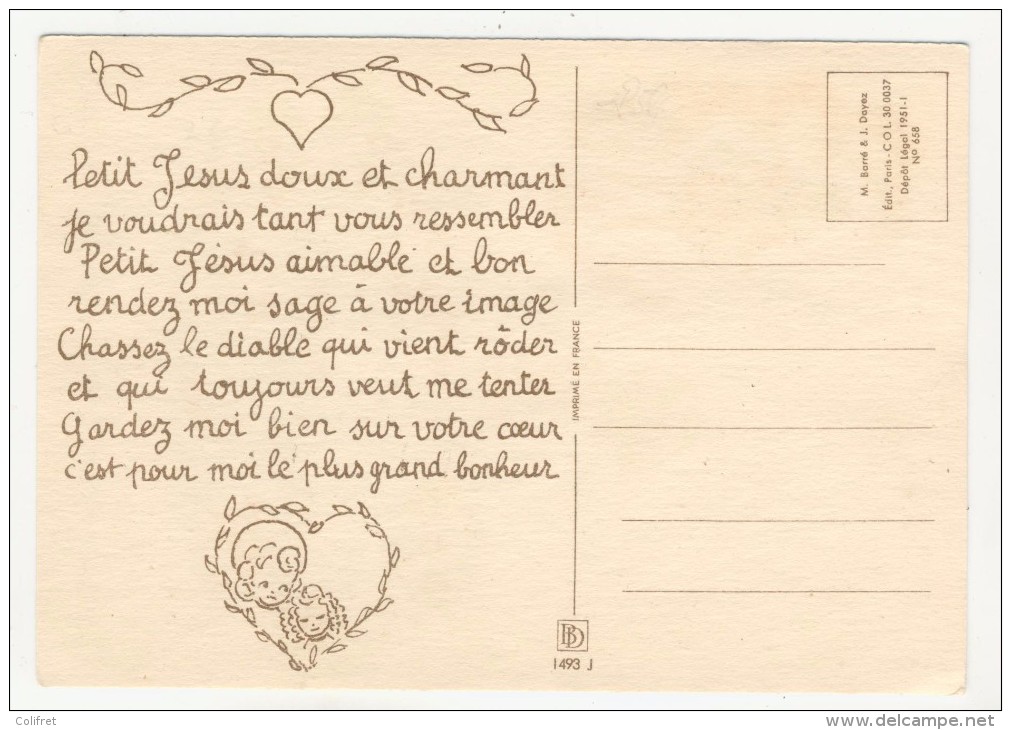 Petit Jesus doux et charmant
je voudrais tant vous ressembler
Petit Jésus aimable et bon
rendez moi sage à votre image
Chassez le diable qui vient rôder
et qui toujours veut me tenter
Gardez moi bien sur votre cœur
c'est pour moi le plus grand bonheur
IMPRIMÉ EN FRANCE
M. Barré & J. Dayez
Édit., Paris - C O L. 30 0037
Dépôt Légal 1951-I
Nº 658
BD
1493 J
Colifret
www.delcampe.net